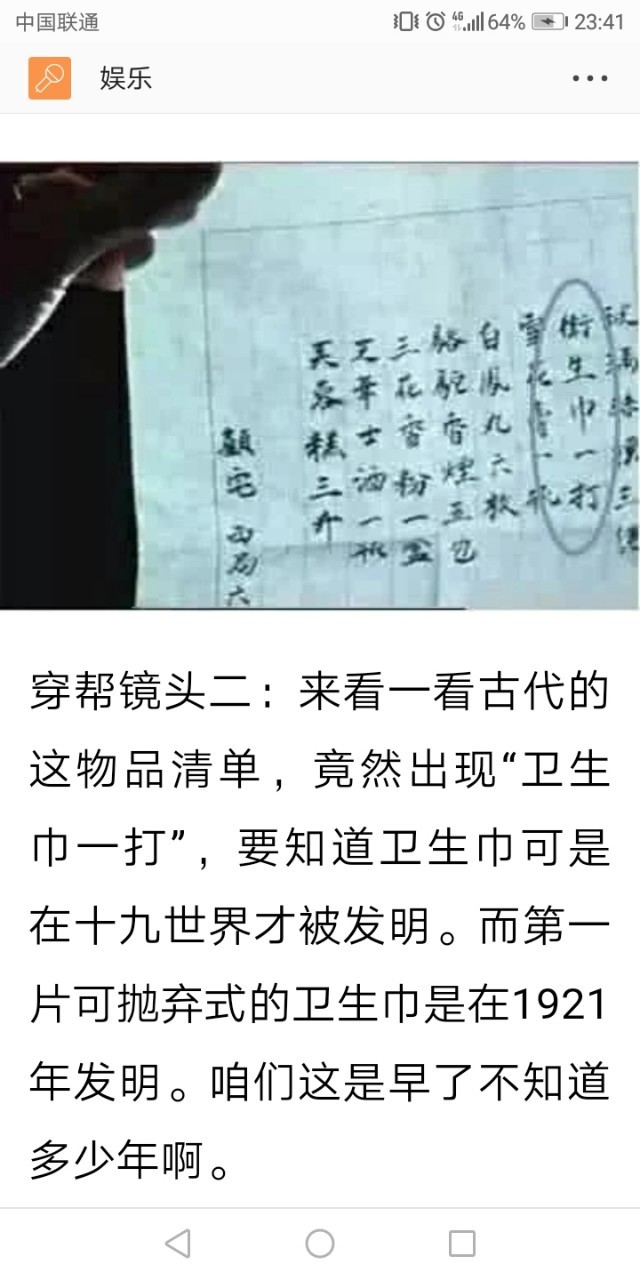 中国联通
4G
64%
23:41
娱乐
衛生巾一打
雪花膏一瓶
白鳳丸六枚
駱駝香煙五包
三花香粉一盒
華士酒一瓶
芙蓉糕三斤
顧宅
穿帮镜头二：来看一看古代的
这物品清单，竟然出现“卫生
巾一打”，要知道卫生巾可是
在十九世界才被发明。而第一
片可抛弃式的卫生巾是在1921
年发明。咱们这是早了不知道
多少年啊。